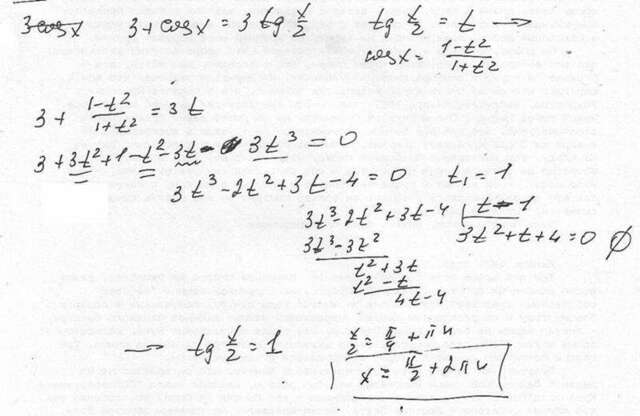 3cosx 3 + cosx = 3 tg x/2 tg x/2 = t →
cosx = (1-t²)/(1+t²)
3 + (1-t²)/(1+t²) = 3t
3 + 3t² + 1 - t² - 3t - 3t³ = 0
3t³ - 2t² + 3t - 4 = 0 t₁ = 1
3t³ - 2t² + 3t - 4 | t - 1
3t³ - 3t² 3t² + t + 4 = 0 ∅
t² + 3t
t² - t
4t - 4
→ tg x/2 = 1 x/2 = π/4 + πn
x = π/2 + 2πn